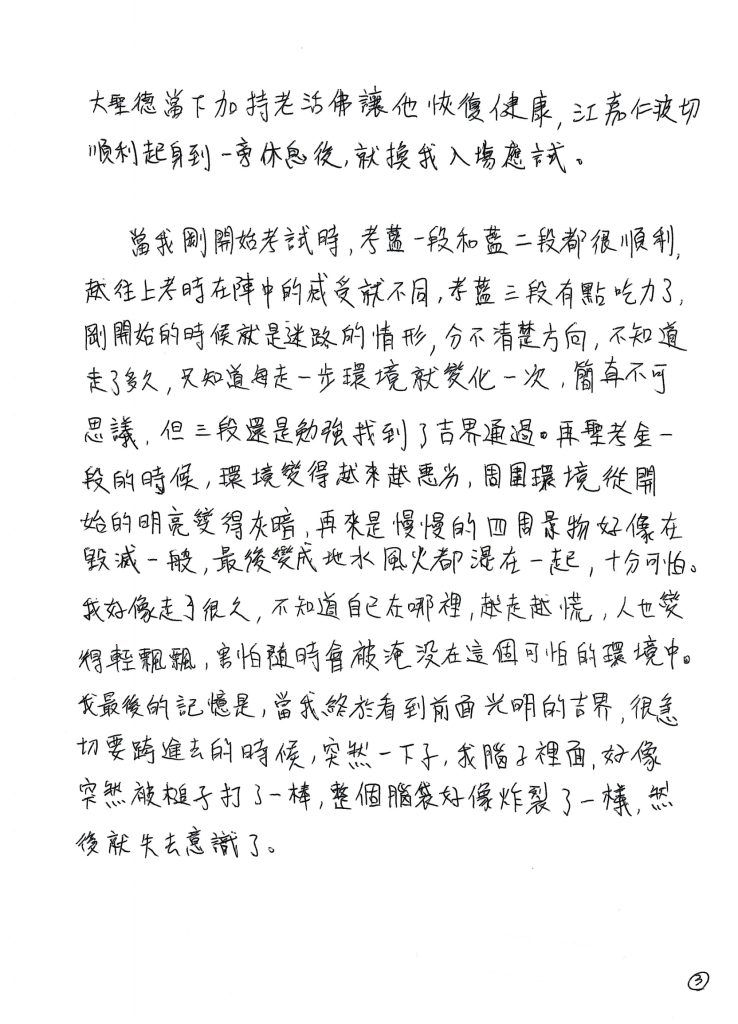 大聖德當下加持老活佛讓他恢復健康,江嘉仁波切
順利起身到一旁休息後,就換我入場應試。
當我剛開始考試時,考藍一段和藍二段都很順利,
越往上考時在陣中的感受就不同,考藍三段有點吃力了,
剛開始的時候就是迷路的情形,分不清楚方向,不知道
走了多久,只知道每走一步環境就變化一次,簡直不可
思議,但三段還是勉強找到了吉界通過。再聖考金一
段的時候,環境變得越來越惡劣,周圍環境從開
始的明亮變得灰暗,再來是慢慢的四周景物好像在
毀滅一般,最後變成地水風火都混在一起,十分可怕。
我好像走了很久,不知道自己在哪裡,越走越慌,人也變
得輕飄飄,害怕隨時會被淹沒在這個可怕的環境中。
我最後的記憶是,當我終於看到前面光明的吉界,很急
切要跨進去的時候,突然一下子,我腦子裡面,好像
突然被槌子打了一棒,整個腦袋好像炸裂了一樣,然
後就失去意識了。
3